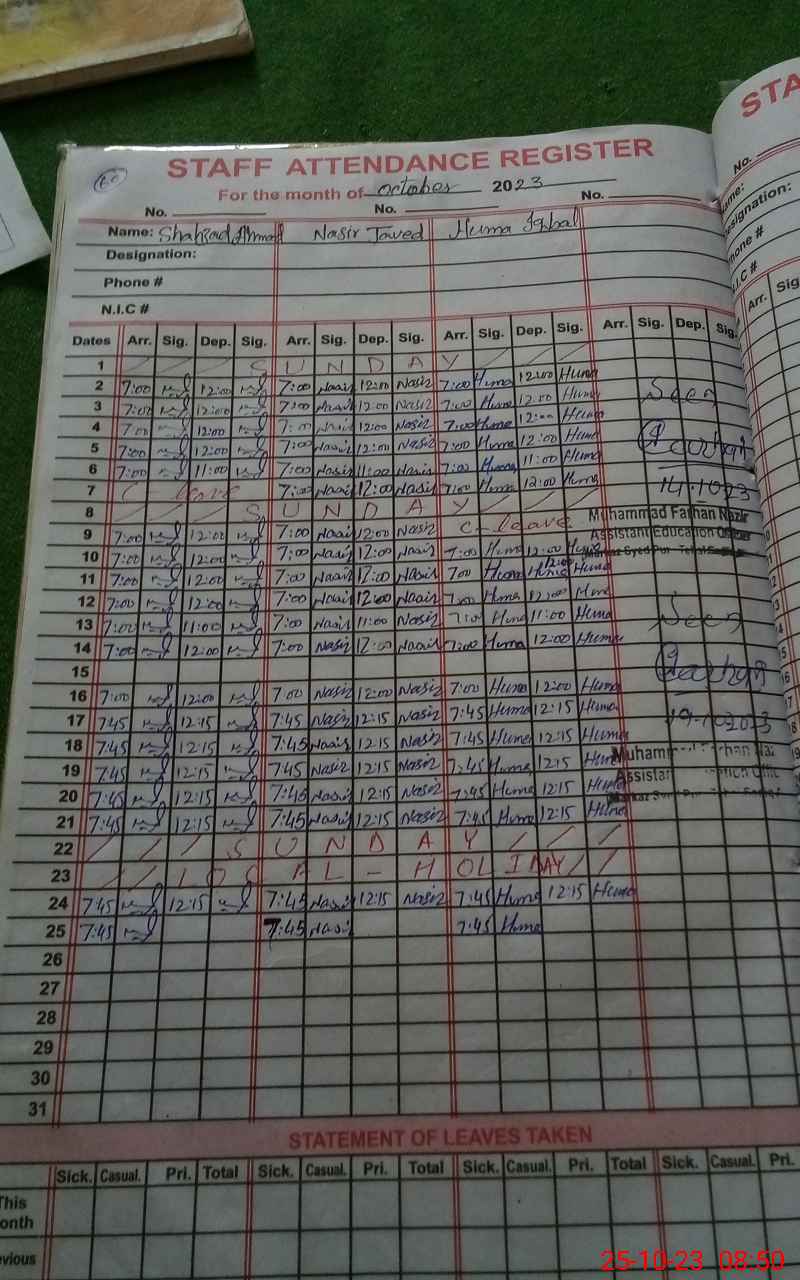 STA
STAFF ATTENDANCE REGISTER
For the month of October 2023
No. No. No. No.
Name: Shahzad Ahmad Nasir Javed Huma Iqbal
Designation:
Phone #
N.I.C #
Dates Arr. Sig. Dep. Sig. Arr. Sig. Dep. Sig. Arr. Sig. Dep. Sig. Arr. Sig. Dep. Sig. Arr. Sig
1 / / / S U N D A Y / / /
2 7:00 12:00 7:00 Nasir 12:00 Nasir 7:00 Huma 12:00 Huma
3 7:00 12:00 7:00 Nasir 12:00 Nasir 7:00 Huma 12:00 Huma Seen
4 7:00 12:00 7:00 Nasir 12:00 Nasir 7:00 Huma 12:00 Huma
5 7:00 12:00 7:00 Nasir 12:00 Nasir 7:00 Huma 12:00 Huma
6 7:00 11:00 7:00 Nasir 11:00 Nasir 7:00 Huma 11:00 Huma
7 C leave 7:00 Nasir 12:00 Nasir 7:00 Huma 12:00 Huma 14.10.23
8 / / / S U N D A Y / / /
9 7:00 12:00 7:00 Nasir 12:00 Nasir C-leave Muhammad Farhan Nazir
10 7:00 12:00 7:00 Nasir 12:00 Nasir 7:00 Huma 12:00 Huma Assistant Education Officer
11 7:00 12:00 7:00 Nasir 12:00 Nasir 700 Huma 12:00 Huma Huma Markaz Syed Pur
12 7:00 12:00 7:00 Nasir 12:00 Nasir 7:00 Huma 12:00 Huma
13 7:00 11:00 7:00 Nasir 11:00 Nasir 7:00 Huma 11:00 Huma Seen
14 7:00 12:00 7:00 Nasir 12:00 Nasir 7:00 Huma 12:00 Huma
15
16 7:00 12:00 7:00 Nasir 12:00 Nasir 7:00 Huma 12:00 Huma
17 7:45 12:15 7:45 Nasir 12:15 Nasir 7:45 Huma 12:15 Huma 19.10.2023
18 7:45 12:15 7:45 Nasir 12:15 Nasir 7:45 Huma 12:15 Huma
19 7:45 12:15 7:45 Nasir 12:15 Nasir 7:45 Huma 12:15 Huma
20 7:45 12:15 7:45 Nasir 12:15 Nasir 7:45 Huma 12:15 Huma
21 7:45 12:15 7:45 Nasir 12:15 Nasir 7:45 Huma 12:15 Huma
22 / / / S U N D A Y / / /
23 / / L O C A L - H O L I D A Y / /
24 7:45 12:15 7:45 Nasir 12:15 Nasir 7:45 Huma 12:15 Huma
25 7:45 7:45 Nasir 7:45 Huma
26
27
28
29
30
31
STATEMENT OF LEAVES TAKEN
Sick. Casual. Pri. Total Sick. Casual. Pri. Total Sick. Casual. Pri. Total Sick. Casual. Pri.
This
onth
vious
25-10-23 08:50